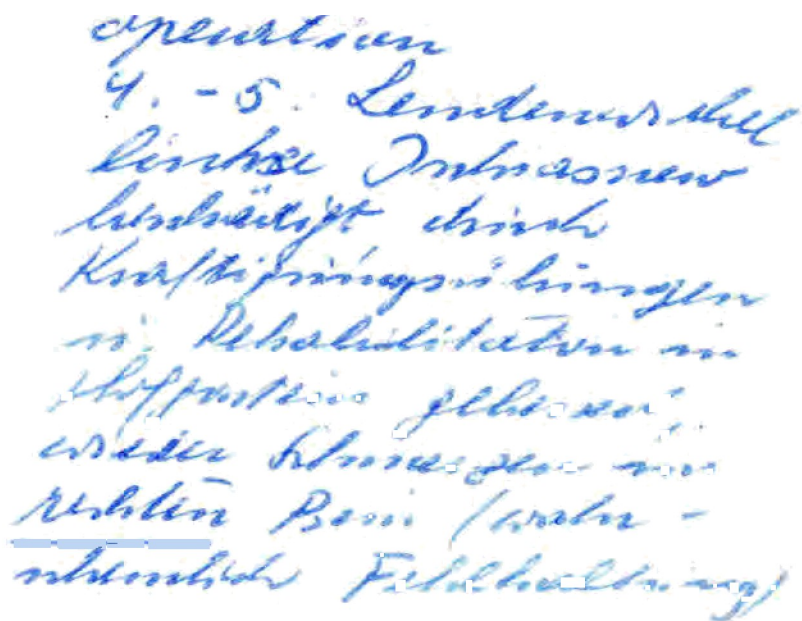 operation
4. - 5. Lendenwirbel
linkse
beschädigt durch
Kräftigungsübungen
u. Rehabilitation in
wieder Schmerzen im
rechten Bein (wahr-
scheinlich Fehlhaltung)